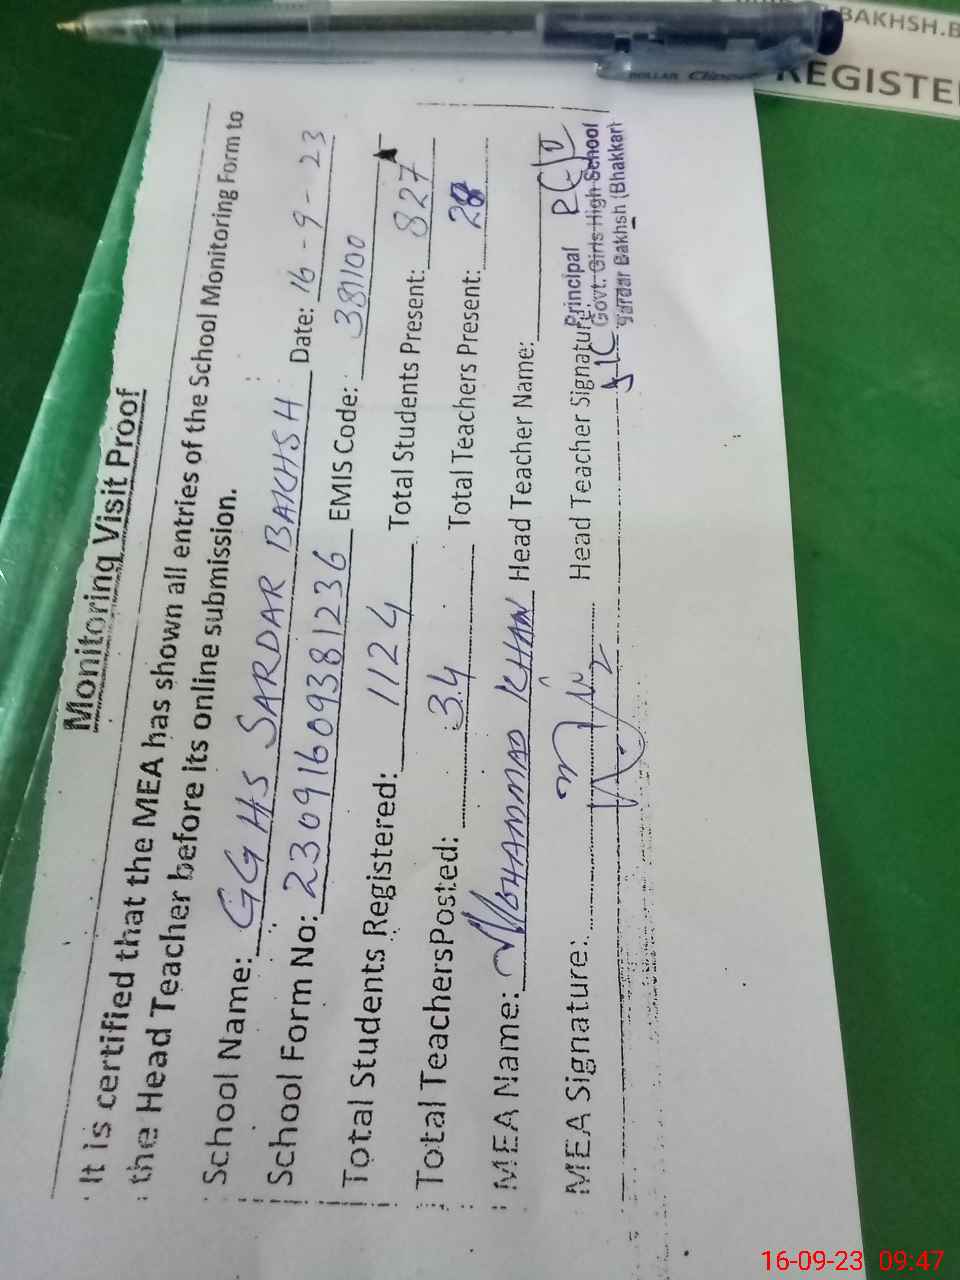 BAKHSH.B
REGISTE
DOLLAR Clipper
Monitoring Visit Proof
It is certified that the MEA has shown all entries of the School Monitoring Form to
the Head Teacher before its online submission.
School Name: GGHS SARDAR BAKHSH Date: 16-9-23
School Form No: 2309160938 1236 EMIS Code: 38110
Total Students Registered: 1124 Total Students Present: 827
Total Teachers Posted: 34 Total Teachers Present:
MEA Name: MOHAMMAD KHAN Head Teacher Name:
MEA Signature: Head Teacher Signature:
Principal
Govt. Girls High School
Sardar Bakhsh (Bhakkar)
16-09-23 09:47